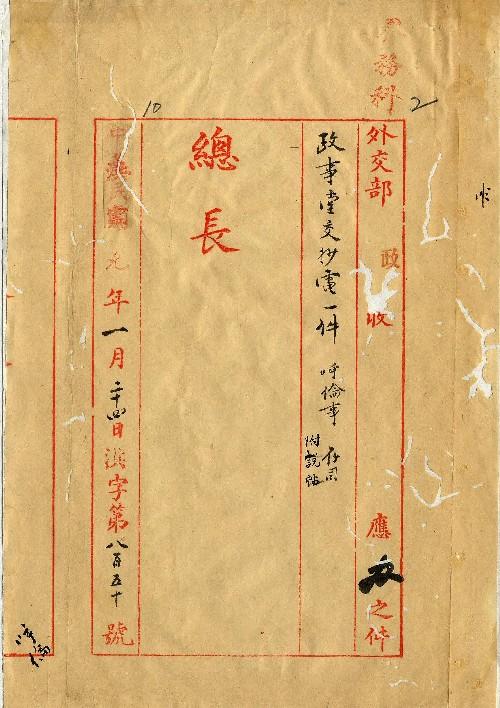 務科
2
外交部 政 收 應 之件
政事堂交抄電一件 呼倫事
附說帖
總長
10
元年一月二十四日漢字第八百五十號